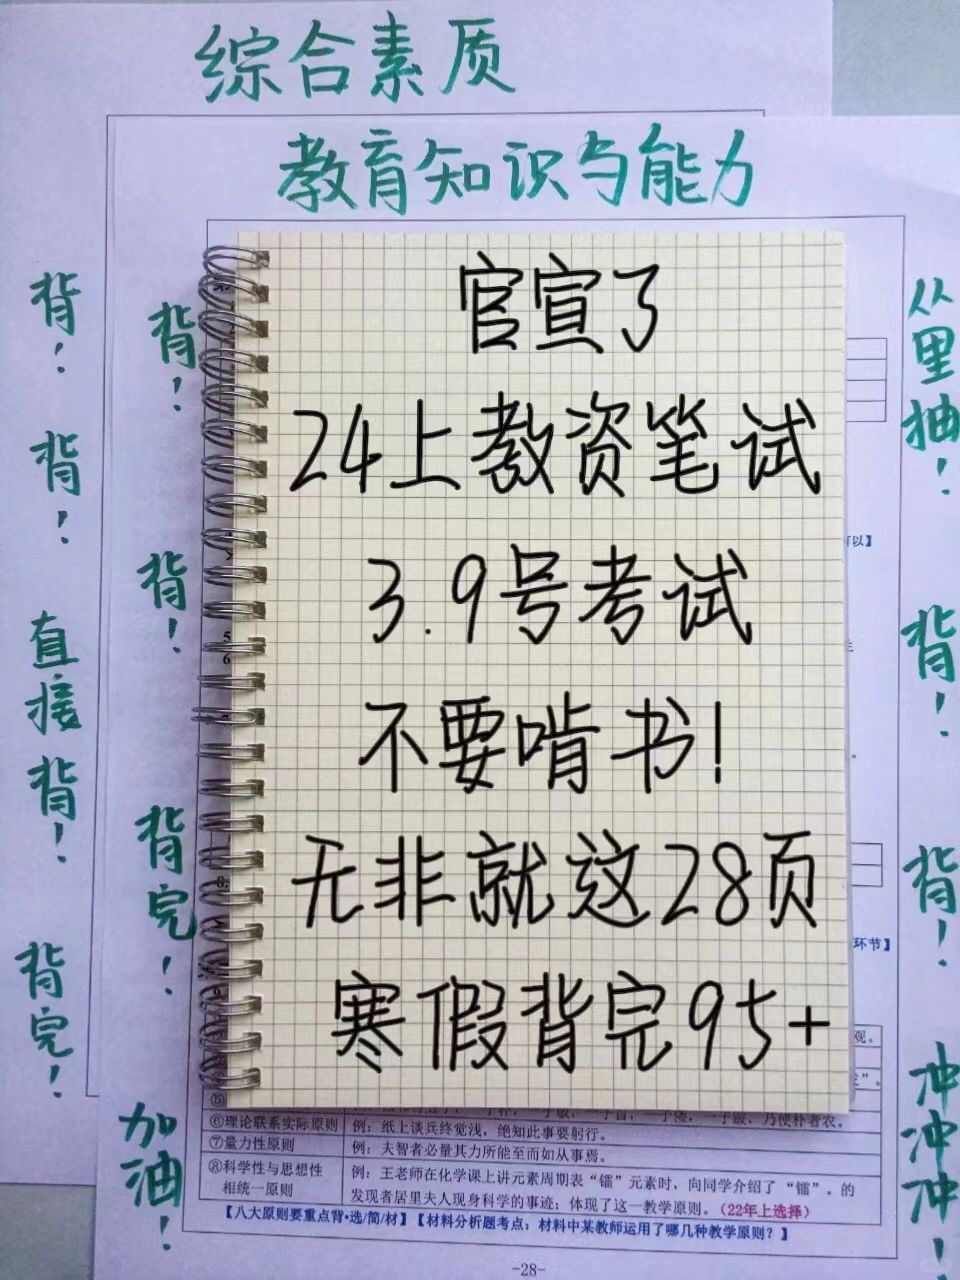 综合素质
教育知识与能力
背！
背！
直接背！
背完！
背！
背！
背完！
加油！
官宣了
24上教资笔试
3.9号考试
不要啃书！
无非就这28页
寒假背完95+
从里抽！
背！
背！
冲冲冲！
可以】
环节】
观。
⑤
⑥理论联系实际原则 例：纸上谈兵终觉浅，绝知此事要躬行。
⑦量力性原则 例：夫智者必量其力所能至而如从事焉。
⑧科学性与思想性相统一原则 例：王老师在化学课上讲元素周期表“镭”元素时，向同学介绍了“镭”。的
发现者居里夫人现身科学的事迹；体现了这一教学原则。（22年上选择）
【八大原则要重点背·选/简/材】【材料分析题考点：材料中某教师运用了哪几种教学原则？】
-28-